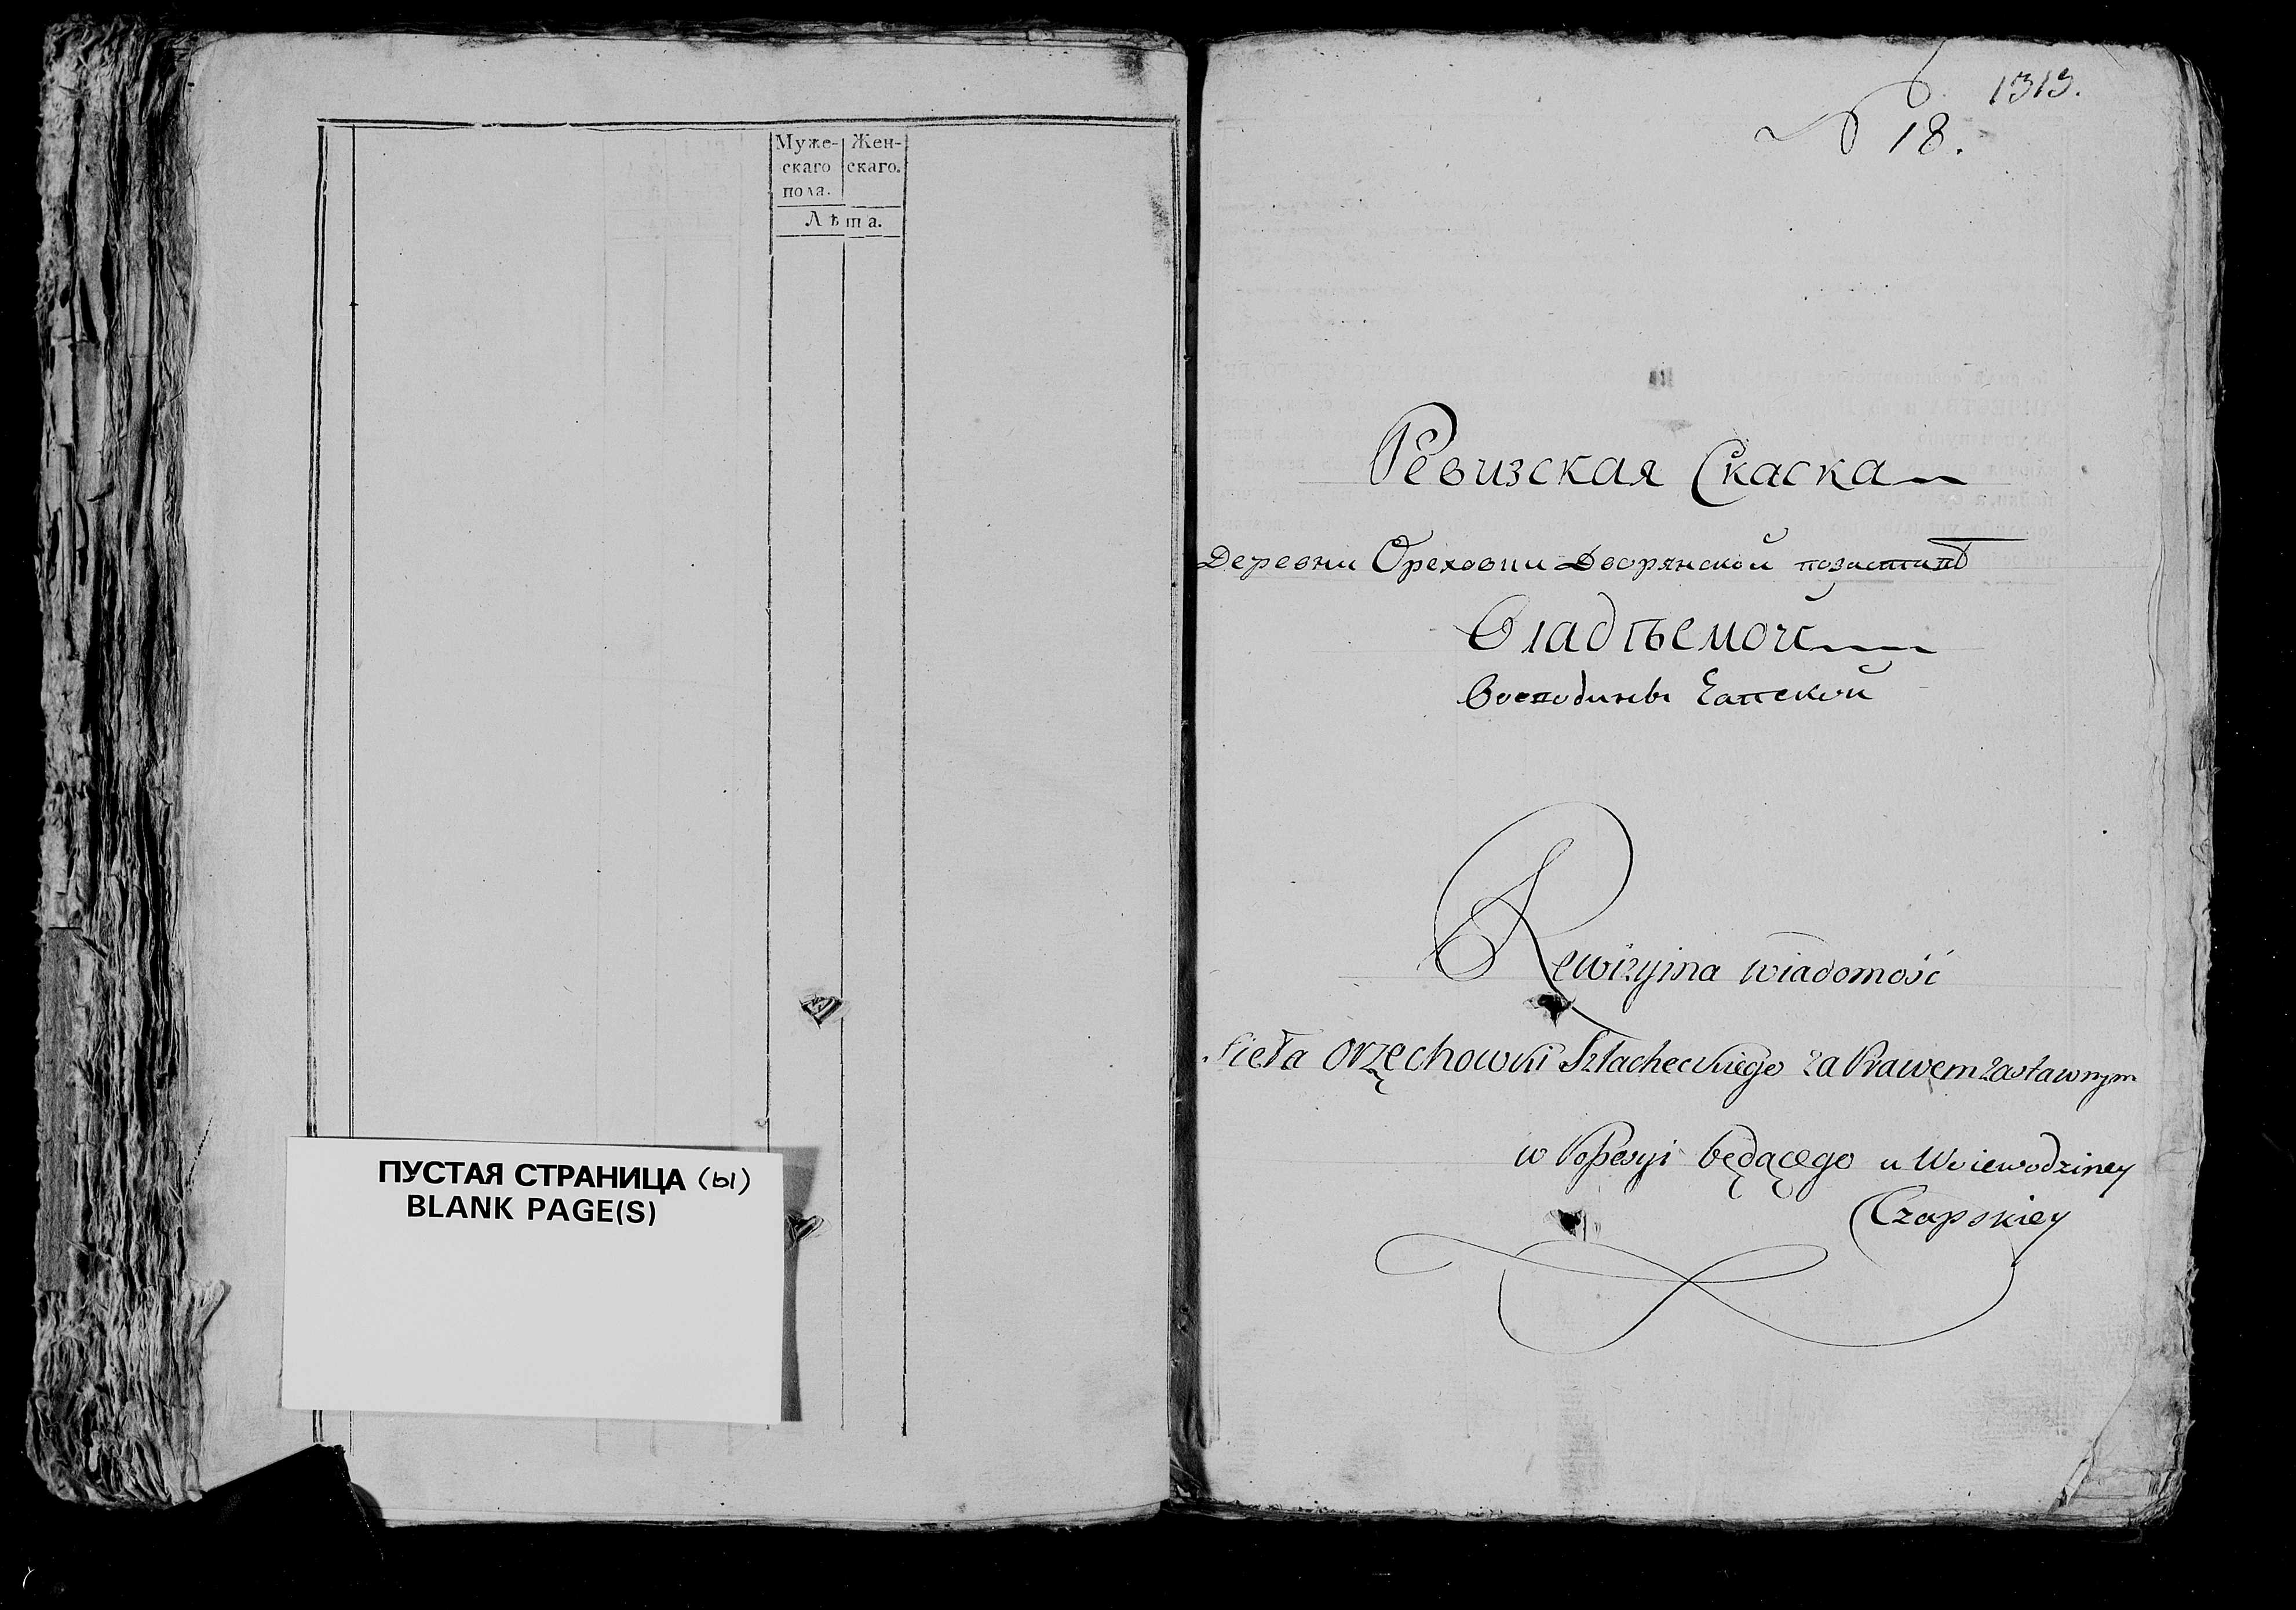 Муже- Жен-
скаго скаго.
пола.
Лѣта.
ПУСТАЯ СТРАНИЦА (ы)
BLANK PAGE(S)
1313.
N 18.
Ревизская Скаска
Деревни Ореховни Дворянской
Владѣемой
Господины Чапской
Rewizyina wiadomość
Sieła Orzęchowni Szlacheckiego za Prawem zastawnym
w Possesyi będącego u Woiewodziney
Czapskiey